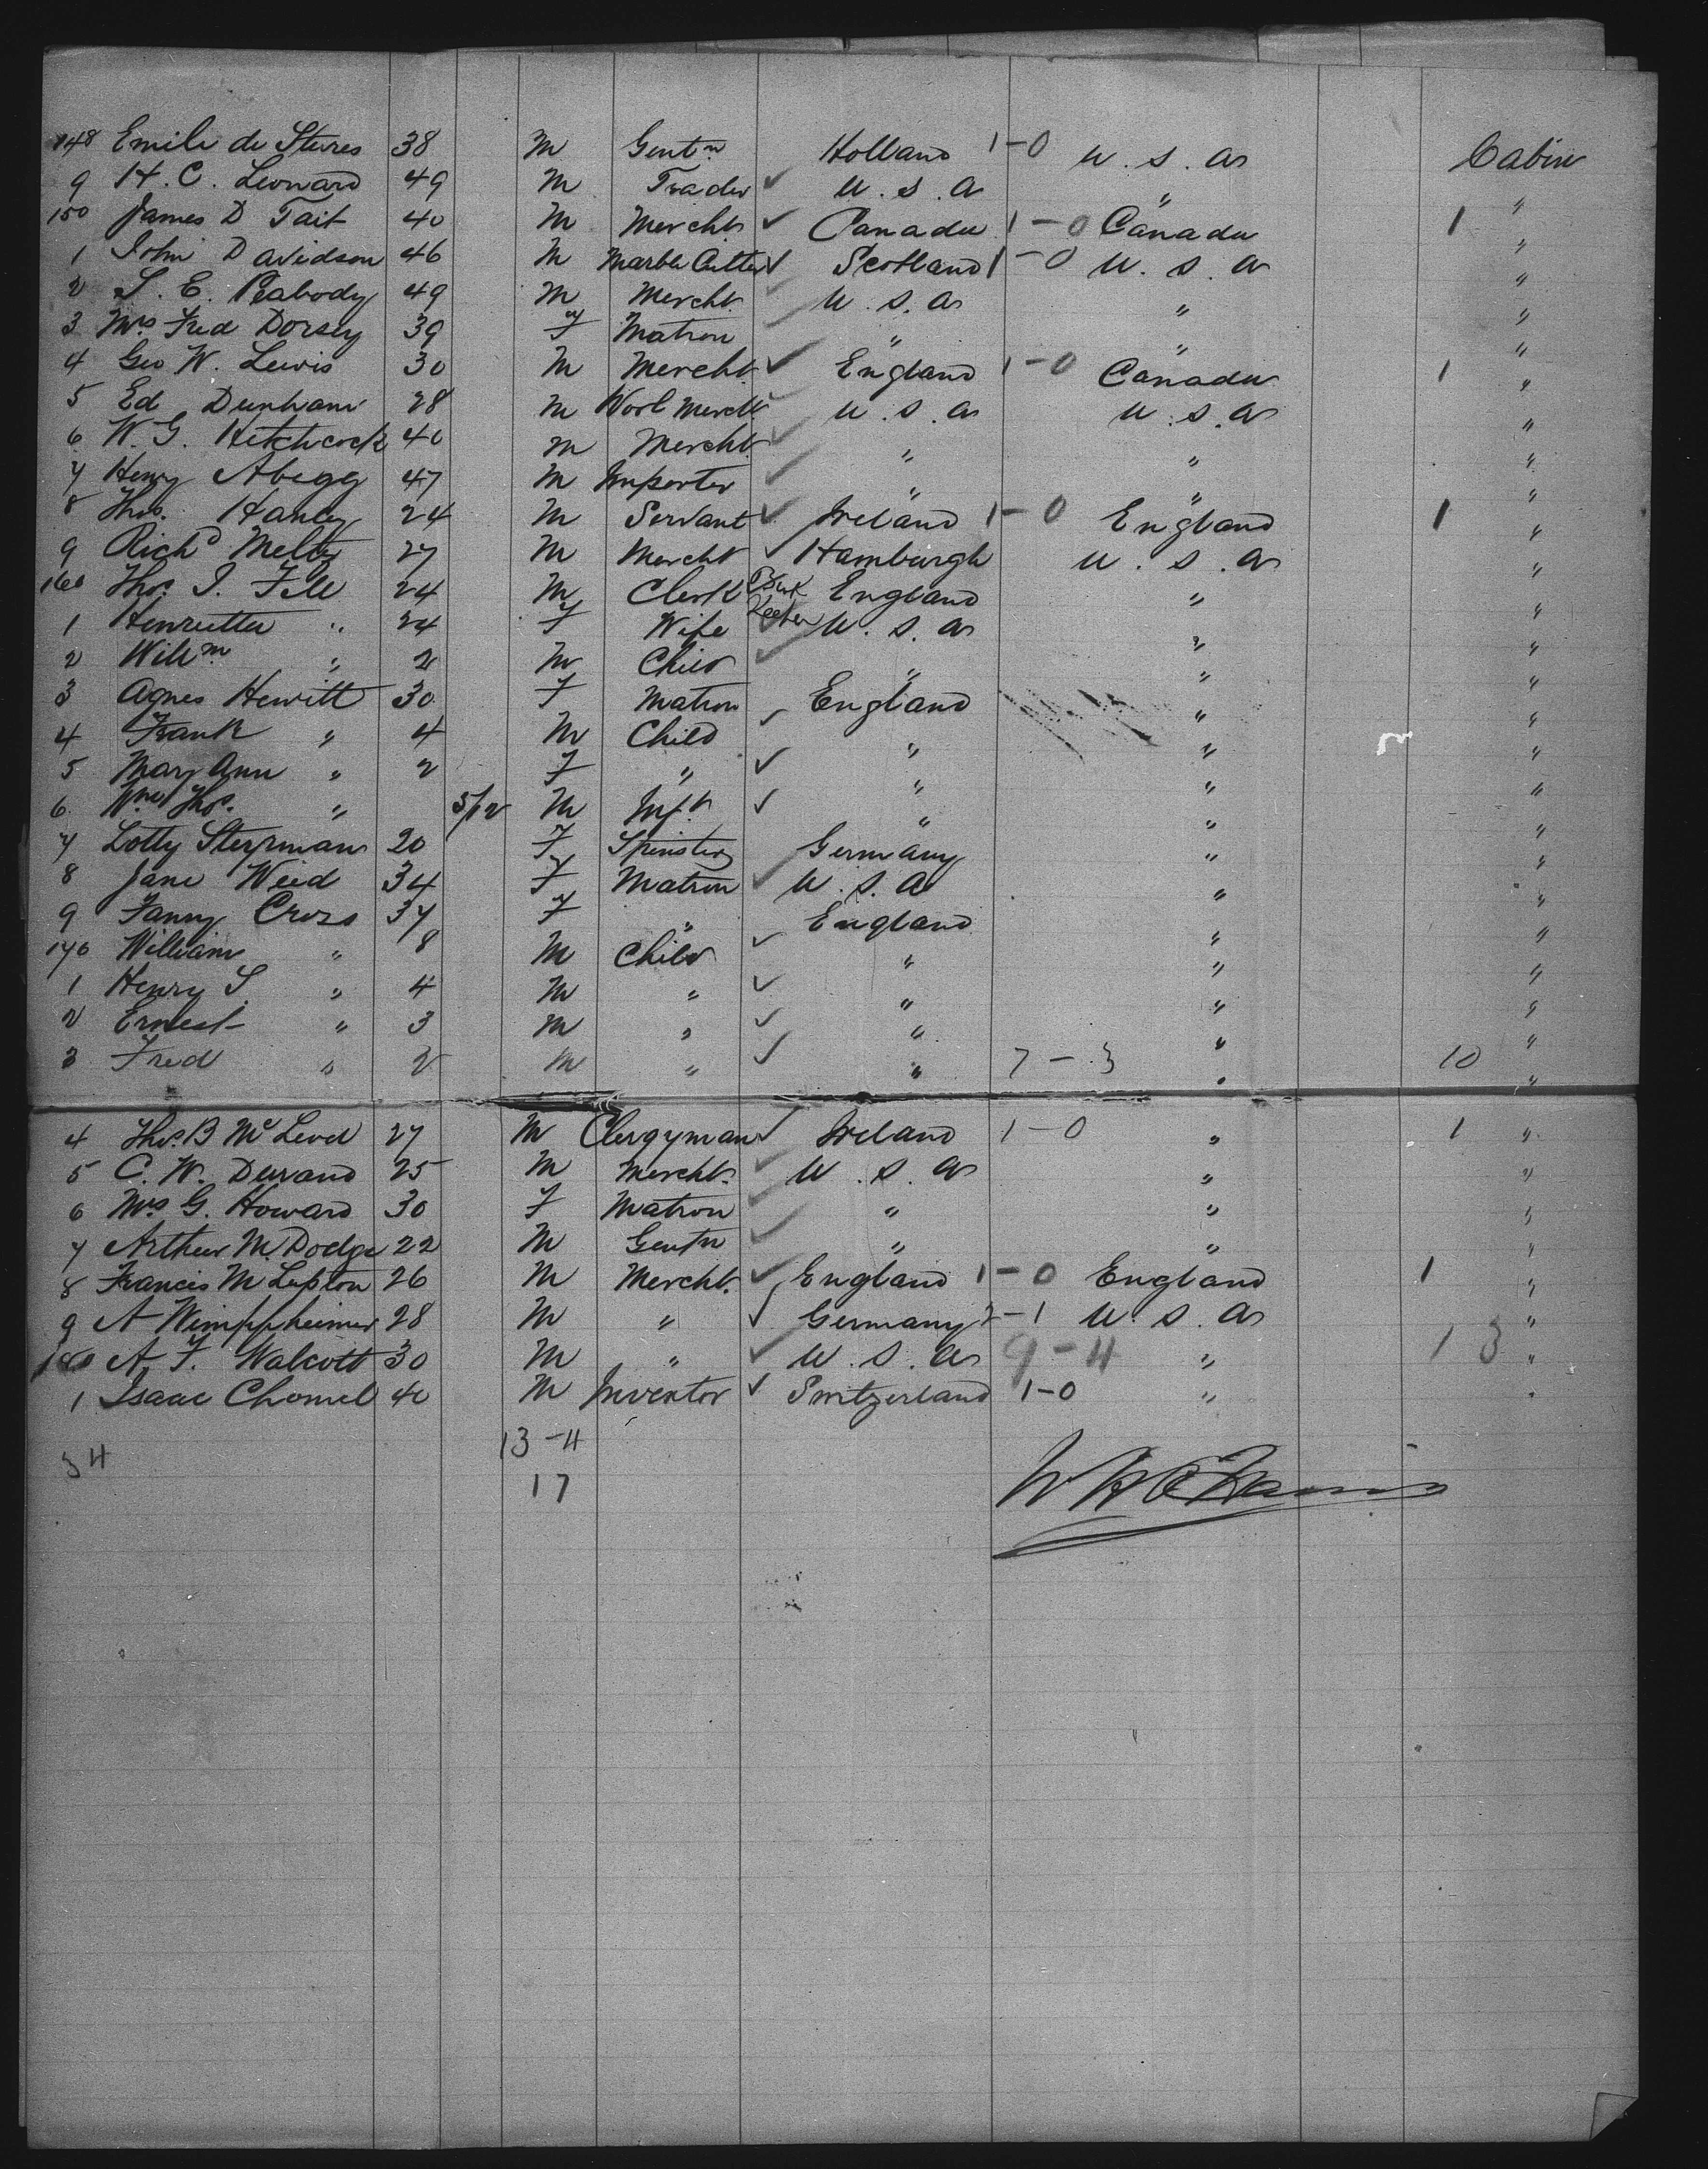 148 Emile de Steures 38 M Gentn Holland 1-0 U.S.A Cabin
9 H.C. Leonard 49 M Trader ✓ U.S.A " "
150 James D Tait 40 M Mercht ✓ Canada 1-0 Canada 1 "
1 John Davidson 46 M Marble Cutter ✓ Scotland 1-0 U.S.A "
2 S.E. Peabody 49 M Mercht ✓ U.S.A " "
3 Mrs Fred Dorsey 39 F Matron " " "
4 Geo W. Lewis 30 M Mercht ✓ England 1-0 Canada 1 "
5 Ed Dunham 28 M Wool Mercht U.S.A U.S.A "
6 W.G. Hitchcock 40 M Mercht ✓ " " "
7 Henry Abegg 47 M Importer ✓ " " "
8 Thos. Hanley 24 M Servant ✓ Ireland 1-0 England 1 "
9 Richd 27 M Mercht ✓ Hamburgh U.S.A "
160 Thos. 24 M Clerk England " "
1 Henrietta " 24 F Wife ✓ U.S.A " "
2 Willm " 2 M Child ✓ " " "
3 Agnes Hewitt 30 F Matron England " "
4 Frank " 4 M Child ✓ " " "
5 Mary Ann " 2 F " ✓ " " "
6 Wm Thos. " 5/12 M Inft ✓ " " "
7 Lotty 20 F Spinster Germany " "
8 Jane Weed 34 F Matron ✓ U.S.A " "
9 Fanny Cross 37 F " England " "
170 William " 8 M Child ✓ " " "
1 Henry S " 4 M " ✓ " " "
2 Ernest " 3 M " ✓ " " "
3 Fred " 2 M " ✓ " 7-3 " 10 "
4 Thos. B McLeod 27 M Clergyman ✓ Ireland 1-0 " 1 "
5 C.W. Durand 25 M Mercht. ✓ U.S.A " "
6 Mrs G. Howard 30 F Matron ✓ " " "
7 Arthur M. Dodge 22 M Gentn ✓ " " "
8 Francis M Lupton 26 M Mercht. ✓ England 1-0 England 1 "
9 A Wimpfheimer 28 M " ✓ Germany 2-1 U.S.A "
180 A.F. Walcott 30 M " ✓ U.S.A 9-4 " 13 "
1 Isaac Chomel 40 M Inventor ✓ Switzerland 1-0 " "
34 13-4
17